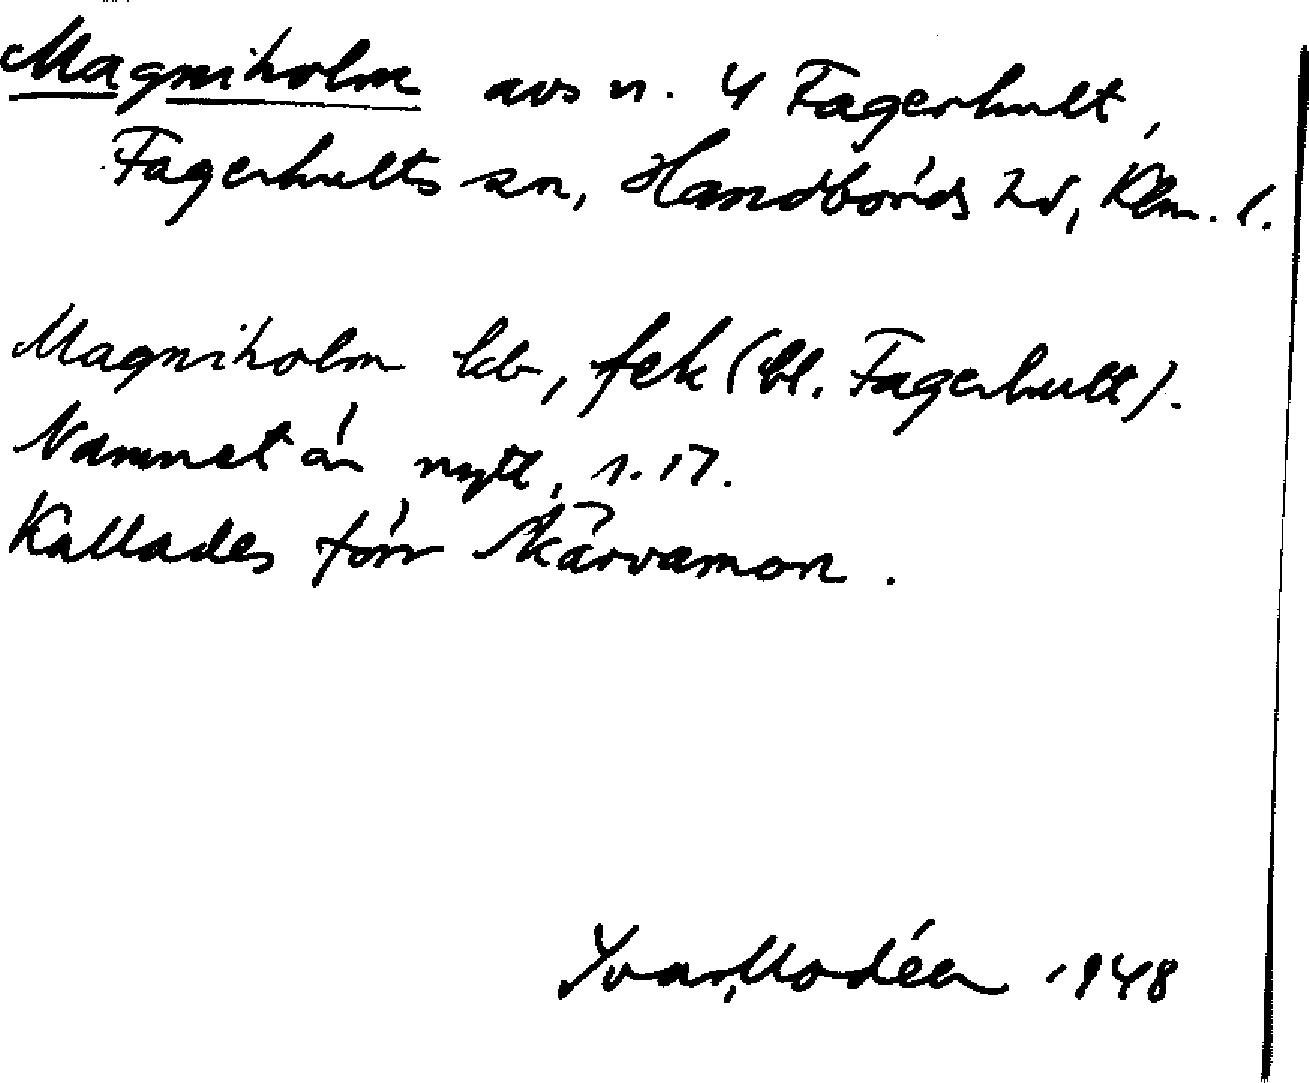 Magniholm avs n. 4 Fagerhult,
Fagerhults sn, Handbörds hd, Klm. l.
Magniholm kb, fek (bl. Fagerhult).
Namnet är nytt, s. 17.
Kallades förr Skärvamon.
Yvar Modéer 1948